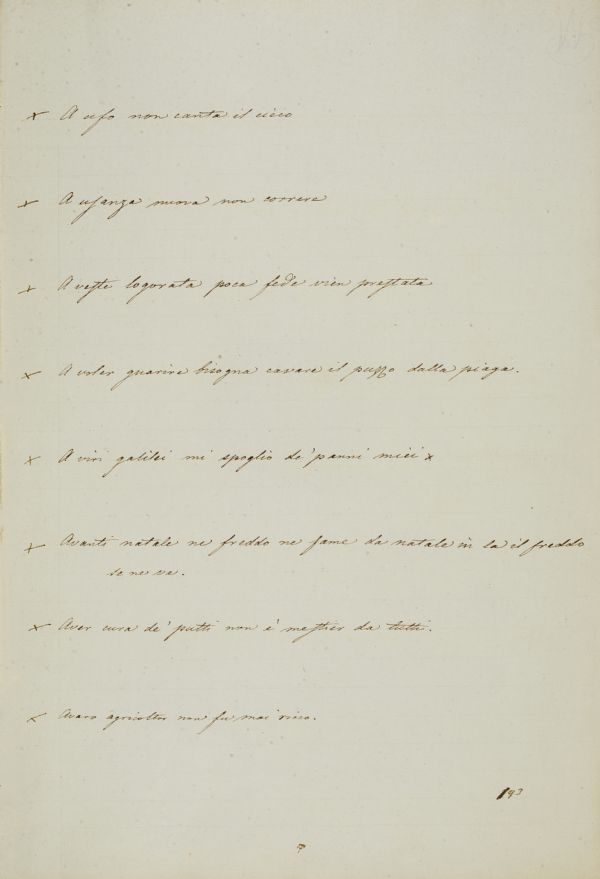 × A ufo non canta il cieco
× A usanza nuova non correre
× A veste logorata poca fede vien prestata
× A voler guarire bisogna cavare il puzzo dalla piaga.
× A viri galilei mi spoglio de' panni miei ×
× Avanti natale ne freddo ne fame da natale in la il freddo
se ne va.
× Aver cura de' putti non è mestier da tutti.
× Avaro agricoltor non fu mai ricco.
193